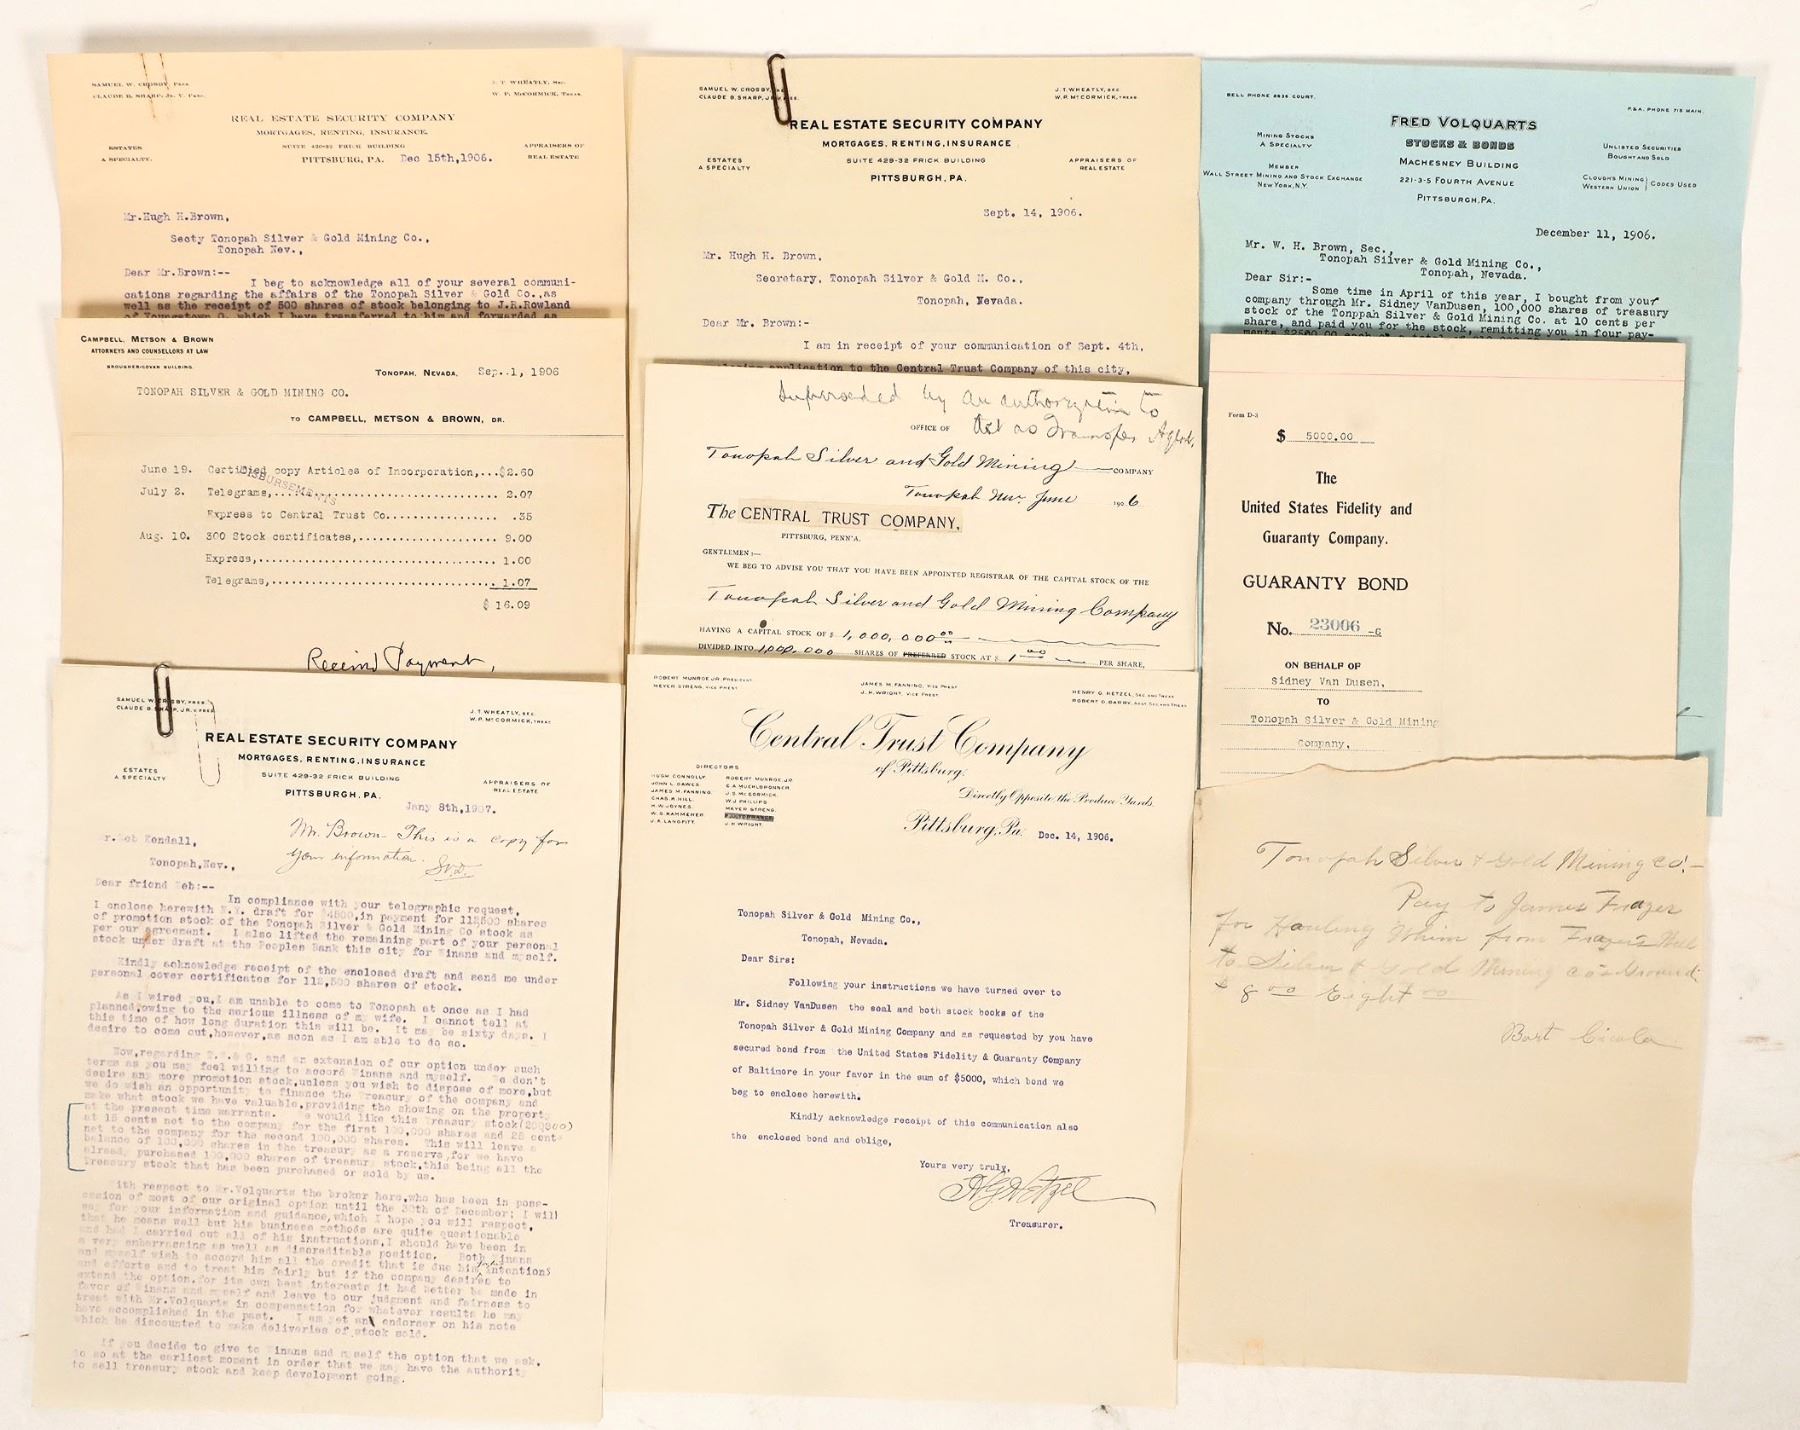 SAMUEL W. CROSBY, PRES.
CLAUDE B. SHARP, JR. V. PRES.
J. T. WHEATLY, SEC.
W. P. McCORMICK, TREAS.
REAL ESTATE SECURITY COMPANY
MORTGAGES, RENTING, INSURANCE.
ESTATES
A SPECIALTY.
SUITE 429-32 FRICK BUILDING
APPRAISERS OF
REAL ESTATE
PITTSBURG, PA. Dec 15th,1906.
Mr.Hugh H.Brown,
Secty Tonopah Silver & Gold Mining Co.,
Tonopah Nev.,
Dear Mr.Brown:--
I beg to acknowledge all of your several communi-
cations regarding the affairs of the Tonopah Silver & Gold Co.,as
well as the receipt of 500 shares of stock belonging to J.R.Rowland
of Youngstown O. which I have transferred to him and forwarded as
CAMPBELL, METSON & BROWN
ATTORNEYS AND COUNSELLORS AT LAW
BROUGHER-GOVAN BUILDING.
TONOPAH, NEVADA, Sep. 1, 1906
TONOPAH SILVER & GOLD MINING CO.
TO CAMPBELL, METSON & BROWN, DR.
DISBURSEMENTS
June 19. Certified copy Articles of Incorporation,...$2.60
July 2. Telegrams,............ 2.07
Express to Central Trust Co............ .35
Aug. 10. 300 Stock certificates,............ 9.00
Express,............ 1.00
Telegrams,............ 1.07
$ 16.09
Received Payment,
SAMUEL W. CROSBY, PRES.
CLAUDE B. SHARP, JR. V. PRES.
J. T. WHEATLY, SEC.
W. P. McCORMICK, TREAS.
REAL ESTATE SECURITY COMPANY
MORTGAGES, RENTING, INSURANCE
ESTATES
A SPECIALTY
SUITE 429-32 FRICK BUILDING
APPRAISERS OF
REAL ESTATE
PITTSBURGH, PA.
Jany 8th,1907.
Mr. Brown - This is a copy for
your information. S.V.D.
Mr.Zeb Kendall,
Tonopah,Nev.,
Dear friend Zeb:--
In compliance with your telographic request,
I enclose herewith N.Y. draft for $4500,in payment for 112500 shares
of promotion stock of the Tonopah Silver & Gold Mining Co stock as
per our agreement. I also lifted the remaining part of your personal
stock under draft at the Peoples Bank this city for Winans and myself.
Kindly acknowledge receipt of the enclosed draft and send me under
personal cover certificates for 112,500 shares of stock.
As I wired you,I am unable to come to Tonopah at once as I had
planned,owing to the serious illness of my wife. I cannot tell at
this time of how long duration this will be. It may be sixty days. I
desire to come out,however,as soon as I am able to do so.
Now,regarding T.S.& G. and an extension of our option under such
terms as you may feel willing to accord Winans and myself. We don't
desire any more promotion stock,unless you wish to dispose of more,but
we do wish an opportunity to finance the Treasury of the company and
make what stock we have valuable,providing the showing on the property
at the present time warrants. We would like this Treasury stock(200300)
at 15 cents net to the company for the first 100,000 shares and 25 cents
net to the company for the second 100,000 shares. This will leave a
balance of 100,000 shares in the treasury as a reserve,for we have
already purchased 100,000 shares of treasury stock,this being all the
Treasury stock that has been purchased or sold by us.
With respect to Mr.Volquarts the broker here,who has been in poss-
ession of most of our original option until the 30th of December; I will
say for your information and guidance,which I hope you will respect,
that he means well but his business methods are quite questionable
and had I carried out all of his instructions,I should have been in
a very embarrassing as well as discreditable position. Both Winans
and myself wish to accord him all the credit that is due his intentions
and efforts and to treat him fairly but if the company desires to
extend the option,for its own best interests it had better be made in
favor of Winans and myself and leave to our judgment and fairness to
treat with Mr.Volquarts in compensation for whatever results he may
have accomplished in the past. I am yet an endorser on his note
which he discounted to make deliveries of stock sold.
If you decide to give to Winans and myself the option that we ask,
do so at the earliest moment in order that we may have the authority
to sell treasury stock and keep development going.
SAMUEL W. CROSBY, PRES.
CLAUDE B. SHARP, JR. V. PRES.
J. T. WHEATLY, SEC.
W. P. McCORMICK, TREAS.
REAL ESTATE SECURITY COMPANY
MORTGAGES, RENTING, INSURANCE
ESTATES
A SPECIALTY
SUITE 429-32 FRICK BUILDING
APPRAISERS OF
REAL ESTATE
PITTSBURGH, PA.
Sept. 14, 1906.
Mr. Hugh H. Brown,
Secretary, Tonopah Silver & Gold M. Co.,
Tonopah, Nevada.
Dear Mr. Brown:-
I am in receipt of your communication of Sept. 4th,
application to the Central Trust Company of this city,
Superseded by an authorization to
act as Transfer Agent.
OFFICE OF
Tonopah Silver and Gold Mining COMPANY
Tonopah Nev. June 1906
The CENTRAL TRUST COMPANY,
PITTSBURG, PENN'A.
GENTLEMEN:—
WE BEG TO ADVISE YOU THAT YOU HAVE BEEN APPOINTED REGISTRAR OF THE CAPITAL STOCK OF THE
Tonopah Silver and Gold Mining Company
HAVING A CAPITAL STOCK OF $ 1,000,000 00
DIVIDED INTO 1,000,000 SHARES OF PREFERRED STOCK AT $ 1 00 PER SHARE,
ROBERT MUNROE JR. PRESIDENT
MEYER STRENG, VICE PREST
JAMES M. FANNING, VICE PREST
J. H. WRIGHT, VICE PREST.
HENRY G. HETZEL, SEC. AND TREAS
ROBERT D. BARRY, ASST SEC. AND TREAS
Central Trust Company
of Pittsburg.
Directly Opposite the Produce Yards.
DIRECTORS
HUGH CONNOLLY
JAMES M. FANNING.
CHAS. R. HILL.
H. W. JOYNES.
ROBERT MUNROE JR.
J. S. McCORMICK.
W. J. PHILLIPS
MEYER STRENG.
J. H. WRIGHT.
Pittsburg, Pa. Dec. 14, 1906.
Tonopah Silver & Gold Mining Co.,
Tonopah, Nevada.
Dear Sirs:
Following your instructions we have turned over to
Mr. Sidney VanDusen the seal and both stock books of the
Tonopah Silver & Gold Mining Company and as requested by you have
secured bond from the United States Fidelity & Guaranty Company
of Baltimore in your favor in the sum of $5000, which bond we
beg to enclose herewith.
Kindly acknowledge receipt of this communication also
the enclosed bond and oblige,
Yours very truly,
H G Hetzel
Treasurer.
BELL PHONE 2636 COURT.
P.&A. PHONE 715 MAIN.
FRED VOLQUARTS
STOCKS & BONDS
MACHESNEY BUILDING
221-3-5 FOURTH AVENUE
PITTSBURGH, PA.
MINING STOCKS
A SPECIALTY
MEMBER
WALL STREET MINING AND STOCK EXCHANGE
NEW YORK, N.Y.
UNLISTED SECURITIES
BOUGHT AND SOLD
CLOUGH'S MINING
WESTERN UNION } CODES USED
December 11, 1906.
Mr. W. H. Brown, Sec.,
Tonopah Silver & Gold Mining Co.,
Tonopah, Nevada.
Dear Sir:-
Some time in April of this year, I bought from your
company through Mr. Sidney VanDusen, 100,000 shares of treasury
stock of the Tonppah Silver & Gold Mining Co. at 10 cents per
share, and paid you for the stock, remitting you in four pay-
Form D-3
$ 5000.00
The
United States Fidelity and
Guaranty Company.
GUARANTY BOND
No. 23006 -G
ON BEHALF OF
Sidney Van Dusen,
TO
Tonopah Silver & Gold Mining
Company,
Tonopah Silver & Gold Mining Co.-
Pay to James Frazer
for Hauling Whim from Frazers Hill
to Silver & Gold Mining Co's Ground.
$ 8 00 Eight 00